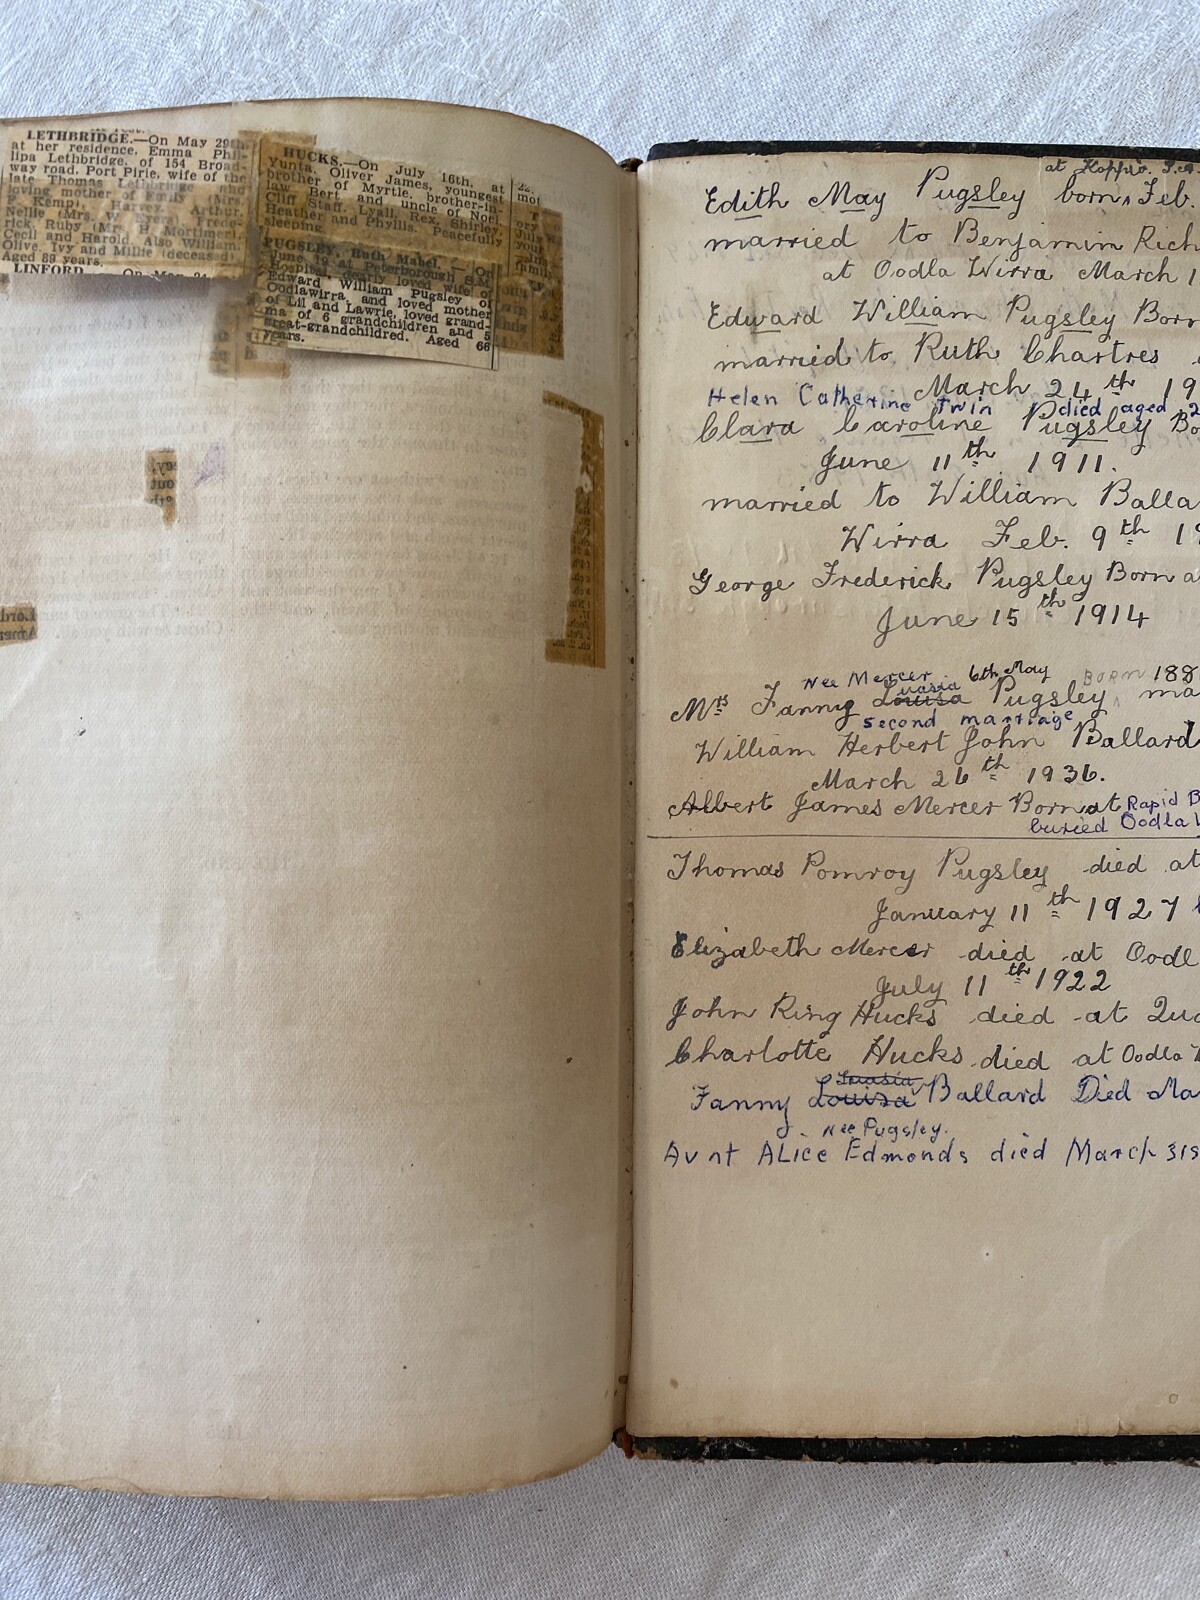 LETHBRIDGE.—On May 29th,
at her residence, Emma Phil-
lipa Lethbridge, of 154 Broad-
way road, Port Pirie, wife of the
late Thomas Lethbridge and
loving mother of Emily (Mrs.
F. Kemp), Harvey, Arthur,
Nellie (Mrs. W. Frede-
rick, Ruby (Mrs. H. Mortimer),
Cecil and Harold. Also William,
Olive, Ivy and Millie (deceased).
Aged 89 years.
LINFORD. On May
HUCKS.—On July 16th, at
Yunta, Oliver James, youngest
brother of Myrtle, brother-in-
law Bert and uncle of Noel,
Cliff Staff, Lyall, Rex, Shirley,
Heather and Phyllis. Peacefully
sleeping.
PUGSLEY, Ruth Mabel. On
June 19 at Peterborough S.M.
Hospital, dearly loved wife of
Edward William Pugsley of
Oodlawirra, and loved mother
of Lil and Lawrie, loved grand-
ma of 6 grandchildren and 5
great-grandchildred. Aged 66
years.
at Koppio. S.A.
Edith May Pugsley born Feb.
married to Benjamin Rich
at Oodla Wirra March 1
Edward William Pugsley Born
married to Ruth Chartres
March 24th 19
Helen Catherine twin died aged 2
Clara Caroline Pugsley Bo
June 11th 1911.
married to William Balla
Wirra Feb. 9th 19
George Frederick Pugsley Born a
June 15th 1914
Nee Mercer 6th May BORN 188
Luasia
Mrs Fanny Louisa Pugsley ma
second marriage
William Herbert John Ballard
March 26th 1936.
Albert James Mercer Born at Rapid B
buried Oodla W
Thomas Pomroy Pugsley died at
January 11th 1927
Elizabeth Mercer died at Oodl
July 11th 1922
John Ring Hucks died at Quo
Charlotte Hucks died at Oodla W
Luasia
Fanny Louisa Ballard Died Ma
nee Pugsley.
Aunt ALice Edmonds died March 31s